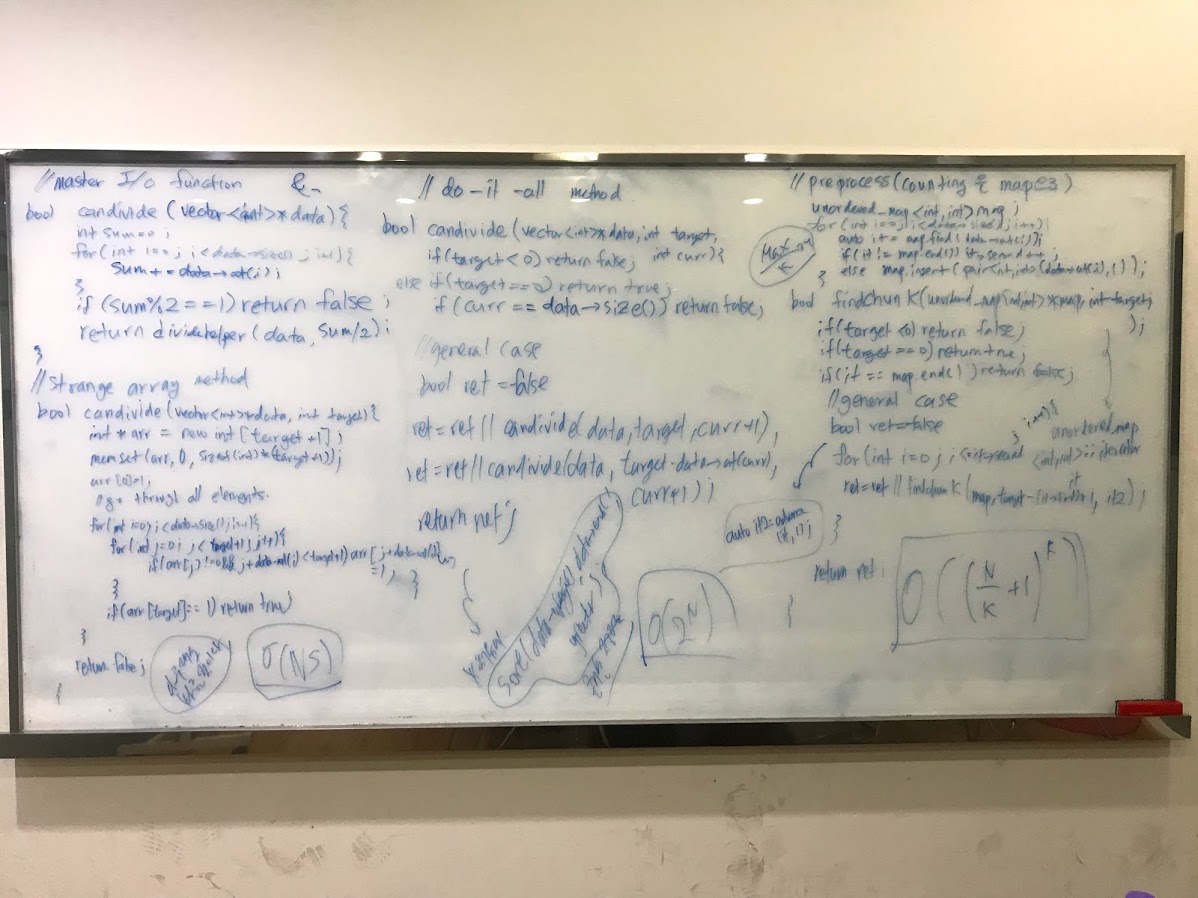 //master I/o function &-
bool candivide (vector<int>*data){
int sum=0;
for(int i=0; i<data->size(); i++){
sum+=data->at(i);
}
if(sum%2==1)return false;
return dividehelper(data, sum/2);
}
//strange array method
bool candivide(vector<int>*data, int target){
int *arr = new int[target+1];
memset(arr, 0, sizeof(int)*(target+1));
arr[0]=1;
//go through all elements.
for(int i=0; i<data->size(); i++){
for(int j=0; j<target+1; j++){
if(arr[j]!=0&& j+data->at(i)<target+1)arr[j+data->at(i)]
=1;
}
if(arr[target]==1)return true;
}
return false;
}
O(NS)
//do-it-all method
bool candivide(vector<int>*data, int target,
int curr){
if(target<0)return false;
else if(target==0)return true;
if(curr==data->size())return false;
//general case
bool ret=false
ret=ret||candivide(data,target,curr+1);
ret=ret||candivide(data, target-data->at(curr),
curr+1);
return ret;
}
sort(data->begin(), data->end(),
greater);
O(2^N)
//preprocess(counting map
unordered_map<int,int>map;
for(int i=0; i<data->size(); i++){
auto it=map.find(data->at(i));
if(it!=map.end())it->second++;
else map.insert(pair<int,int>(data->at(i),1));
}
bool findchunk(unordered_map<int,int>*map, int target,
unordered_map
<int,int>::iterator
it
);
if(target<0)return false;
if(target==0)return true;
if(it==map.end())return false;
//general case
bool ret=false
for(int i=0; i<=it->second; i++){
ret=ret||findchunk(map,target-(it->first)*i, it2);
auto it2=advance
(it,1);
}
return ret;
}
O((N/K+1)^K)